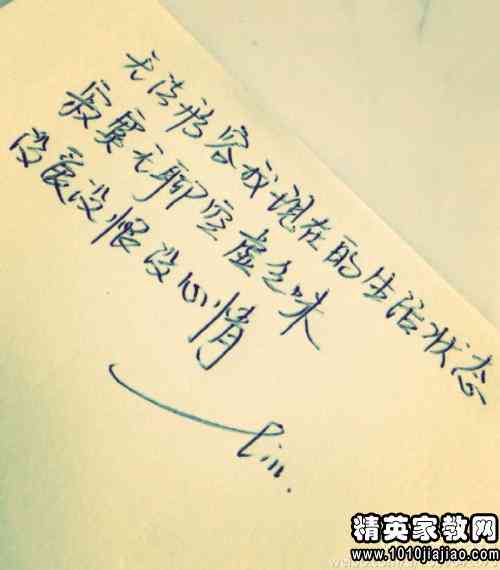 无法形容我现在的生活状态
寂寞无聊空虚乏味
没爱没恨没心情
Lin.
精英家教网
www.1010jiajiao.com